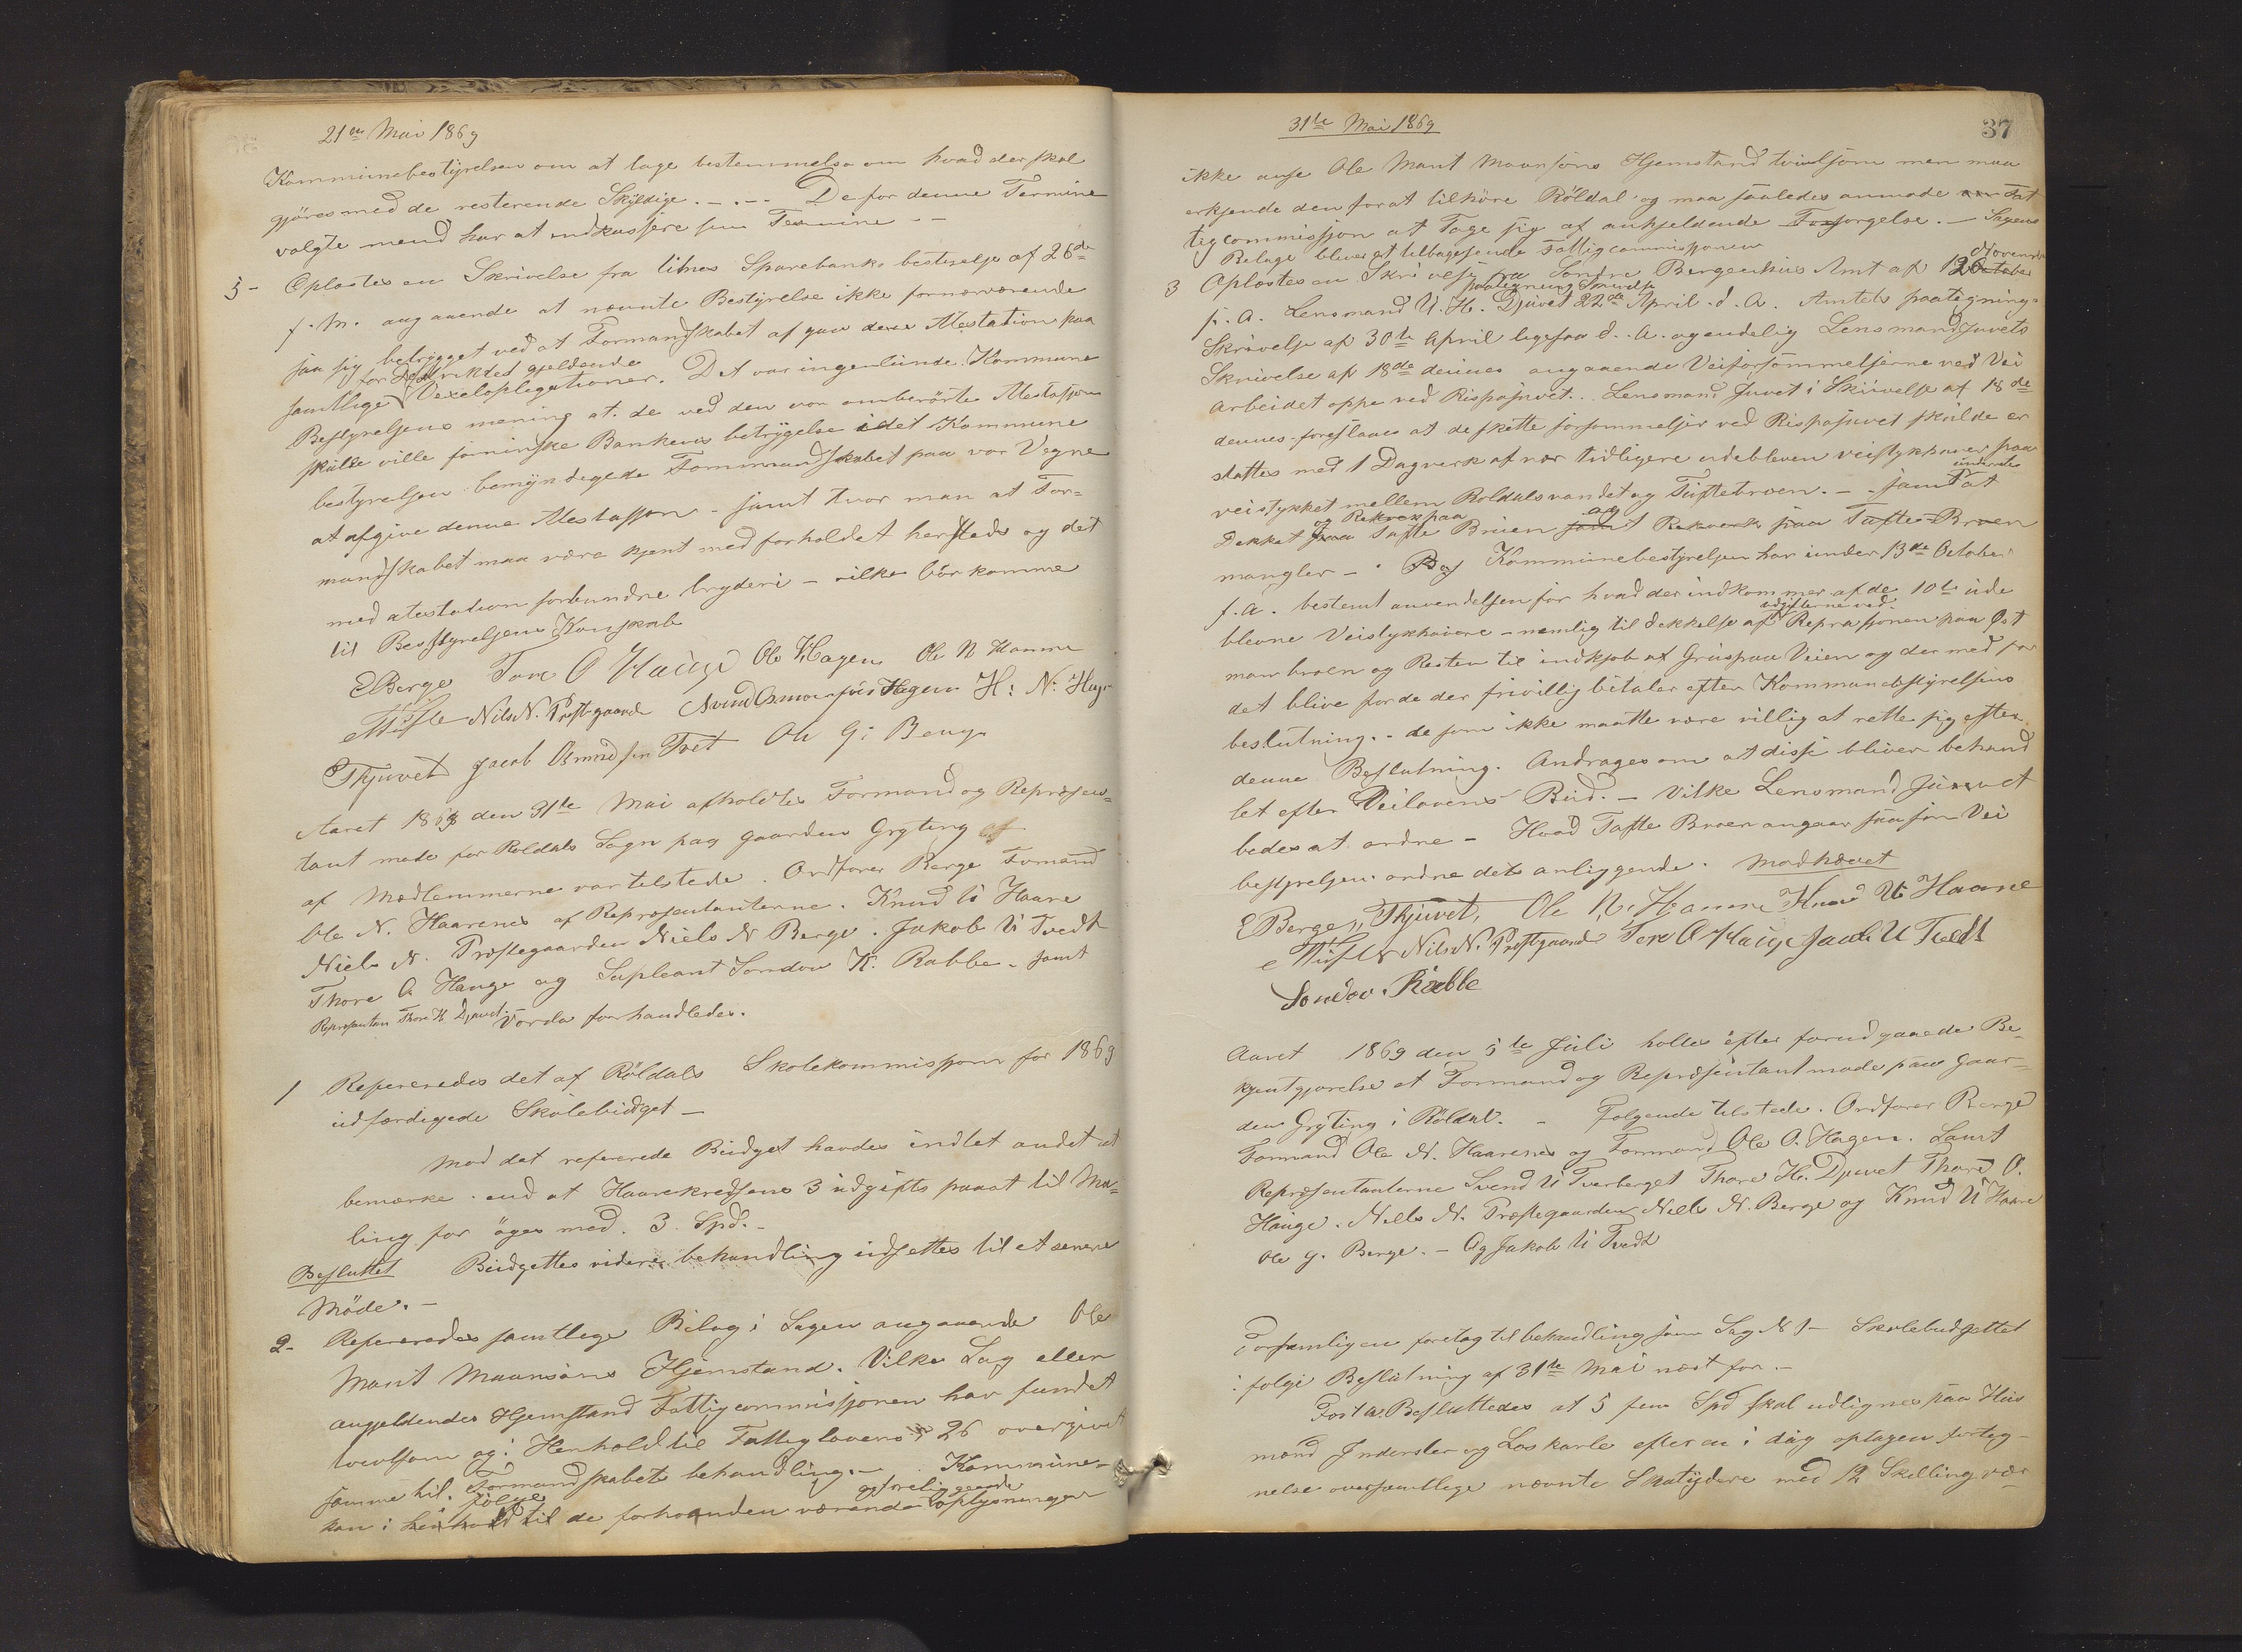 21de Mai 1869
Kommunebestyrelsen om at tage bestemmelse om hvad der skal
gjöres med de resterende Skyldige. - . - - De for denne Termine
valgte mend har at indkassere sin Termine - -
5 - Oplæstes en Skrivelse fra Utnes Sparebanks bestyrelse af 26de
f. M. angaaende at nævnte Bestyrelse ikke fornærværende
saa sig betrygget ved at Formandskabet af gav dere Atestation paa
for Distriktet gjeldende
samtlige Vexelopligationer. Det var ingenlunde Kommune
Bestyrelsens mening at de ved den vor omberörte Atestasjon
skulle ville forminske Bankens betrygelse idet Kommune
bestyrelsen bemyndigede Formandskabet paa vor Vegne
at afgive denne Atestasjon - samt tror man at For-
mandskabet maa være kjent med forholdet hersteds og det
med atestation forbundne bryderi - vilke bör komme
til Bestyrelsens Kunskab
E Berge Tore O Hauge Ole Hagen Ole N Haarre
Nils N. Prestgaard Svend Hagen H: N: Hage
T Hjuvet Jacob Osmundsen Tvet Ole G: Berge
Aaret 1869 den 31te Mai afholdtes Formand og Repræsen-
tant möde for Röldals Sogn paa Gaarden Gryting af
af Medlemmerne var tilstede. Ordforer Berge Formand
Ole N. Haarenes af Repræsentanterne. Knud U Haare
Niels N. Præstegaarden Niels N Berge. Jakob U Tvedt
Thore O Hauge og Supleant Sondov K. Rabbe - samt
Representan Thore H Djuvet. Vorda forhandledes.
1 Refereredes det af Röldals Skolekommissjon for 1869
udfærdigede Skolebudget -
Mod det refererede Budget havdes indtet andet at
bemærke. end at Haarekredsens 3 udgifts paaat til Ma-
ling for öges med. 3. Spd. -
Besluttet Budgettes videre behandling udsettes til et senere
Möde. -
2 - Refereredes samtlege Bilag i Sagen angaaende Ole
Mant Maansöns Hjemstand. Vilke Lag eller
angjeldendes Hjemstand Fattigcommissjonen har fundet
tvivlsom og i Henhold til Fattiglovens § 26 overgivet
samme til. Formandskabets behandling. - Kommune-
fölge og foreliggende
kan i henhold til de forhaanden værende oplysninger
31te Mai 1869
37
ikke anse Ole Mant Maansöns Hjemstand tvivlsom men maa
erkjende den for at tilhöre Röldal og maa saaledes anmode Fat
tigcommissjon at Tage sig af ankjeldende Forsorgelse. - Sagens
Belage blive at tilbagesende Fattigcommissjonen
3 Oplæstes en Skrivelse fra Söndre Bergenhus Amt af 12 October Novembr
paategning Skrivelse
f. A. Lensmand U. H. Djuvet 22de April d. A. Amtets paategnings
Skrivelse af 30te April ligesaa d. A. og endelig Lensmand Juvets
Skrivelse af 18de dennes angaaende Veiforsömmelserne ved Vei
arbeidet oppe ved Rispasjuvet. Lensmand Juvet i Skrivelse af 18de
dennes foreslaaes at de skette forsommelser ved Rispasjuvet skulde er
stattes med 1 Dagverk af vær tidligere udebleven veistykhaver paa
veistykket mellem Roldalsvandet og Tuftebroen. - samt at underste
og Rækverk paa og
Dekket paa Tufte Bruen samt Rekverk paa Tufte Broen
mangler - Kommunebestyrelsen har under 13de October
f. A. bestemt anvendelsen for hvad der indkommer af de 10te ude
udgifterne ved
blevne Veistykhavere - nemlig til dekkelse af Reprasjonen paa Öst
manbroen og Resten til indkjob af Grus paa Veien og der med for
det blive for de der frivillig betaler efter Kommunebestyrelsens
beslutning. - de som ikke maatte være villig at rette sig efter
denne Beslutning. Andrages om at disse bliver behand
let efter Veilovens Bud. - Vilke Lensmand Juvet
bedes at ordne - Hvad Tufte Broen angaar saa for Vei
bestyrelsen ordne dets anliggende. Möd hævet
E Berge, T Hjuvet, Ole N. Haarre Knud U Haare
Nils N. Prestgaard Tore O Hauge Jacob U Tvedt
Sondov. Rabbe
Aaret 1869 den 5te Juli holtes efter forudgaaede Be-
kjentgjorelse et Formand og Repræsentant mode paa Gaar-
den Gryting i Röldal. - Folgende tilstede. Ordforer Berge
Formand Ole N. Haarenes og Formand Ole O. Hagen. Samt
Repræsentanterne Svend U Tverberget Thore H. Djuvet Thore O.
Hauge. Nills N. Præstegaarden Niels N. Berge og Knud U Haare
Ole G. Berge. - Og Jakob U Tvedt
Forsamligen foretog til behandling som Sag N 1 - Skolebudgettet
i folge Beslutning af 31te Mai næst for. -
Post a. Besluttedes at 5 fem Spd skal udlignes paa Hus
mænd Inderster og Loskarle efter en i dag optagen forteg-
nelse over samtlege nævnte Skatydere med 12 Skelling vær